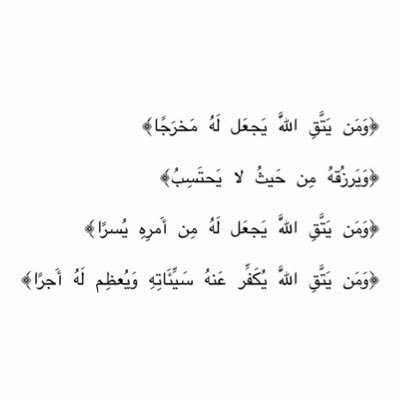 ﴿وَمَن يَتَّقِ اللَّهَ يَجعَل لَهُ مَخرَجًا﴾
﴿وَيَرزُقهُ مِن حَيثُ لا يَحتَسِبُ﴾
﴿وَمَن يَتَّقِ اللَّهَ يَجعَل لَهُ مِن أَمرِهِ يُسرًا﴾
﴿وَمَن يَتَّقِ اللَّهَ يُكَفِّر عَنهُ سَيِّئَاتِهِ وَيُعظِم لَهُ أَجرًا﴾